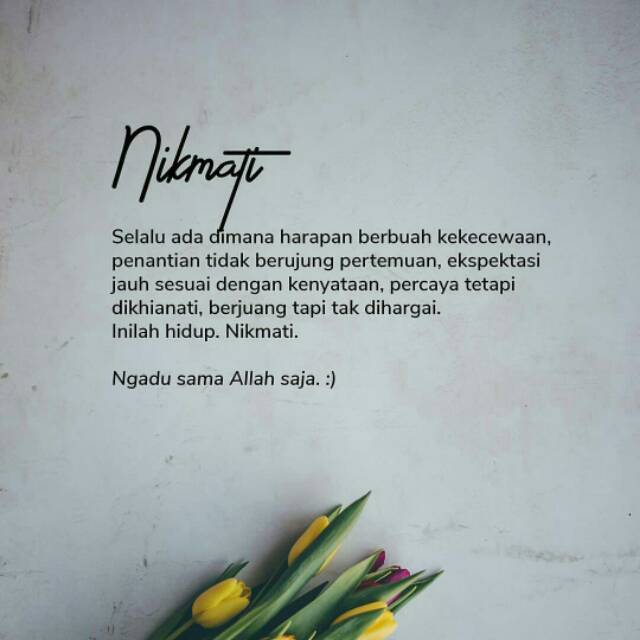 Nikmati
Selalu ada dimana harapan berbuah kekecewaan,
penantian tidak berujung pertemuan, ekspektasi
jauh sesuai dengan kenyataan, percaya tetapi
dikhianati, berjuang tapi tak dihargai.
Inilah hidup. Nikmati.
Ngadu sama Allah saja. :)